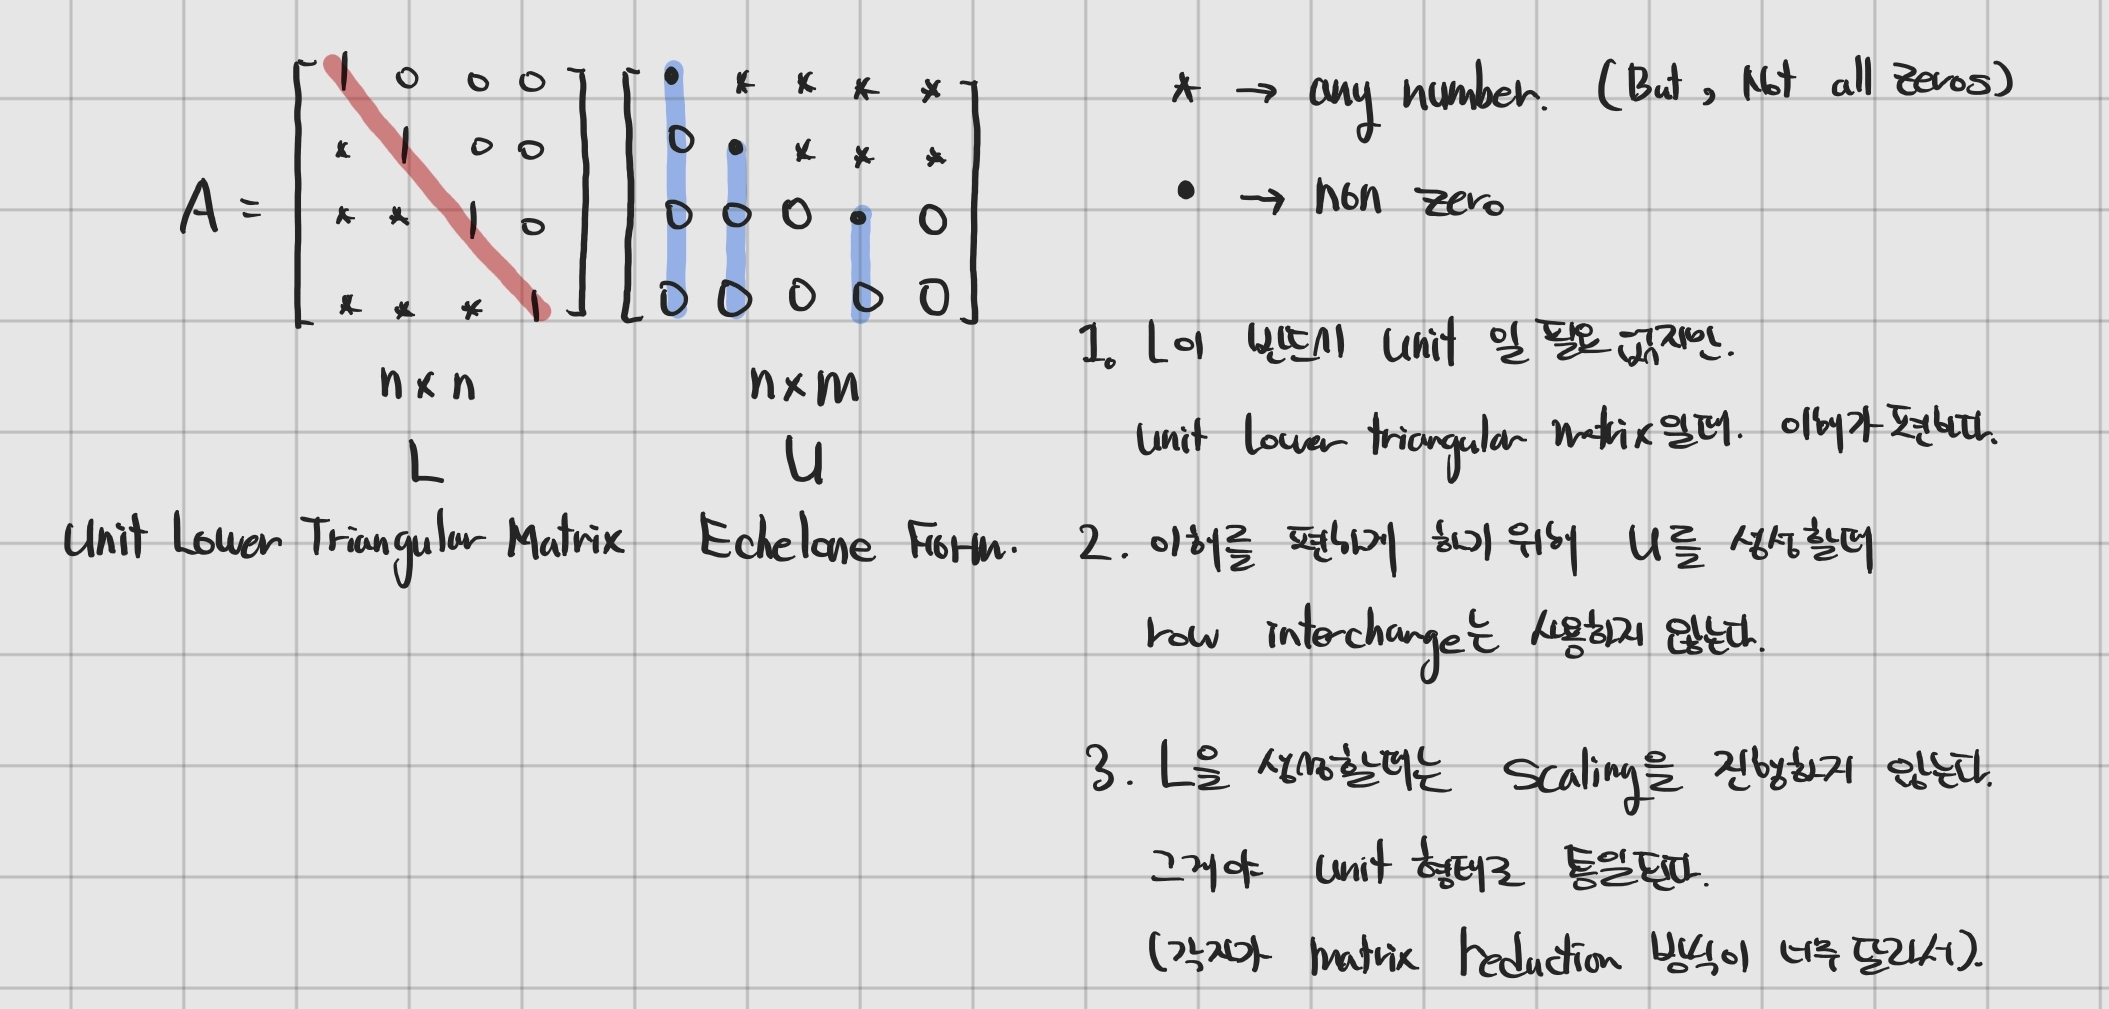 A = [ 1 0 0 0 ] [ • * * * * ]
[ * 1 0 0 ] [ 0 • * * * ]
[ * * 1 0 ] [ 0 0 0 • 0 ]
[ * * * 1 ] [ 0 0 0 0 0 ]
n × n n × m
L U
Unit Lower Triangular Matrix Echelone Form.
* → any number. (But, Not all zeros)
• → non zero
1. L이 반드시 unit 일 필요 없지만.
unit lower triangular matrix일때. 이해가 편하다.
2. 이해를 편하게 하기 위해 U를 생성할때
row interchange는 사용하지 않는다.
3. L을 생성할때는 Scaling을 진행하지 않는다.
그래야 unit 형태로 통일된다.
(각자가 matrix reduction 방식이 너무 달라서).